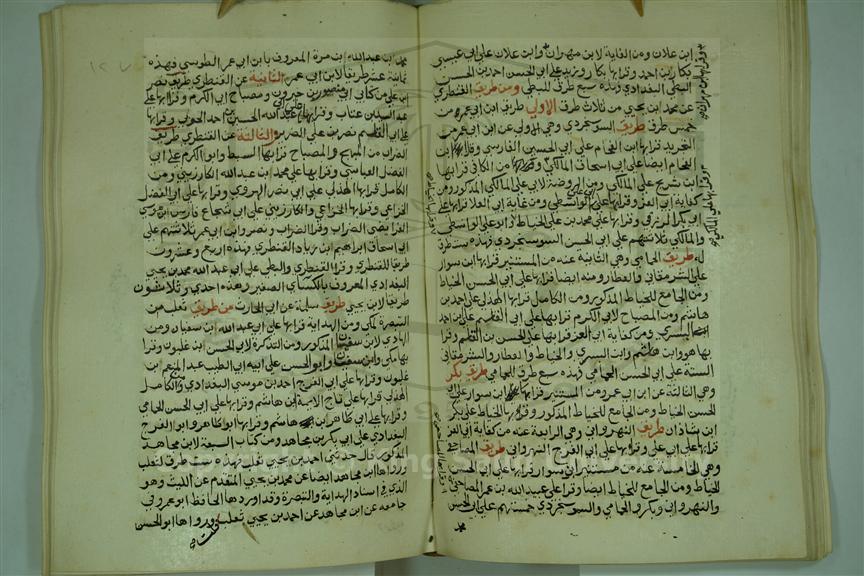 ابن علان ومن الغاية لابن مهران وابن علان على ابي عيسى
بكار بن احمد وقرا بها بكار وزيد على ابي الحسن احمد بن الحسن
البطي البغدادي فهذه سبع طرق للبطي ومن طريق القنطري
عن محمد بن يحيى من ثلاث طرق الاولى طريق ابن ابي عمر من
خمس طرق طريق السوسنجردي وهي الاولى عن ابن ابي عمر من
التجريد قرا بها ابن الفحام على ابي الحسين الفارسي وقال ابن
الفحام ايضا على ابي اسحاق المالكي ومن الكافي قرا بها
ابن شريح على المالكي ومن الروضة لابي علي المالكي المذكور ومن
كفاية ابي العز وقرا بها على الواسطي ومن غاية ابي العلا قرا بها على
ابي بكر المزرفي وقرا بها على محمد بن علي الخياط وقرا ابو علي الواسطي
والمالكي ثلاثتهم على ابي الحسن السوسنجردي فهذه ست طرق
له طريق الحمامي وهي الثانية عنه من المستنير قرا بها ابن سوار
على الشرمقاني والعطار ومنه ايضا قرا بها على ابي الحسن الخياط
ومن الجامع للخياط المذكور ومن الكامل قرا بها الهذلي على احمد بن
هاشم ومن المصباح لابي الكرم قرا بها على ابي القاسم علي بن احمد
البسري ومن كفاية ابي العز قرا بها على الحسن بن القاسم وقرا
بها هو وابن هاشم وابن البسري والخياط والعطار والشرمقاني
الستة على ابي الحسن الحمامي فهذه سبع طرق للحمامي طريق بكر
وهي الثالثة عن ابن ابي عمر ومن المستنير قرا بها ابن سوار على ابي
الحسن الخياط ومن الجامع للخياط المذكور وقرا بها الخياط على بكر
ابن شاذان طريق النهرواني وهي الرابعة عنه من كفاية ابي العز
قرا بها على ابي علي وقرا بها على ابي الفرج النهرواني طريق المصاحفي
وهي الخامسة عنه من مستنير ابن سوار قرا بها على ابي الحسن
الخياط ومن الجامع للخياط ايضا وقرا على عبيد الله بن عمر المصاحفي
والنهرواني وبكر والحمامي والسوسنجردي خمستهم على ابي الحسن
محمد بن عبد الله بن مرة المعروف بابن ابي عمر الطوسي فهذه
ثمانية عشر طريقا لابن ابي عمر الثانية عن القنطري طريق نصر
بن علي من كتابي ابي منصور بن خيرون ومصباح ابي الكرم وقرا بها على
عبد السيد بن عتاب وقرا بها على ابي عبد الله الحسين بن احمد الحربي وقرا بها
على ابي القاسم نصر بن علي الضرير والثالثة عن القنطري طريق
الضراب من المبهج والمصباح قرا بها السبط وابو الكرم على ابي
الفضل العباسي وقرا بها على محمد بن عبد الله الكارزيني ومن
الكامل قرا بها الهذلي على ابي نصر الهروي وقرا بها على ابي الفضل
الخزاعي وقرا بها الخزاعي والكارزيني على ابي شجاع فارس بن موسى
الفرايضي الضراب وقرا الضراب ونصر وابن ابي عمر ثلاثتهم على
ابي اسحاق ابراهيم بن زياد القنطري فهذه اربع وعشرون
طريقا للقنطري وقرا القنطري والبطي على ابي عبد الله محمد بن يحيى
البغدادي المعروف بالكسائي الصغير وهذه احدى وثلاثون
طريقا لابن يحيى طريق سلمة عن ابي الحارث من طريق ثعلب من
التبصرة لمكي ومن الهداية قرا بها على ابي عبد الله بن سفيان ومن
الهادي لابن سفيان المذكور ومن التذكرة لابي الحسن بن غلبون وقرا
بها مكي وابن سفيان وابو الحسن على ابيه ابي الطيب عبد المنعم بن
غلبون وقرا بها على ابي الفرج احمد بن موسى البغدادي والكامل
الهذلي قرا بها على تاج الايمة ابن هاشم وقرا بها على ابي الحسن الحمامي
وقرا بها على ابي طاهر بن ابي هاشم وقرا بها ابو طاهر وابو الفرج
البغدادي على ابي بكر بن مجاهد ومن كتاب السبعة لابن مجاهد
المذكور قال حدثني احمد بن يحيى ثعلب فهذه ست طرق لثعلب
ورواها ابن مجاهد ايضا عن محمد بن يحيى المتقدم عن الليث وهو
الذي في اسناد الهداية والتبصرة وقد اوردها الحافظ ابو عمرو في
جامعه عن ابن مجاهد عن احمد بن يحيى ثعلب ورواها ابو الحسن